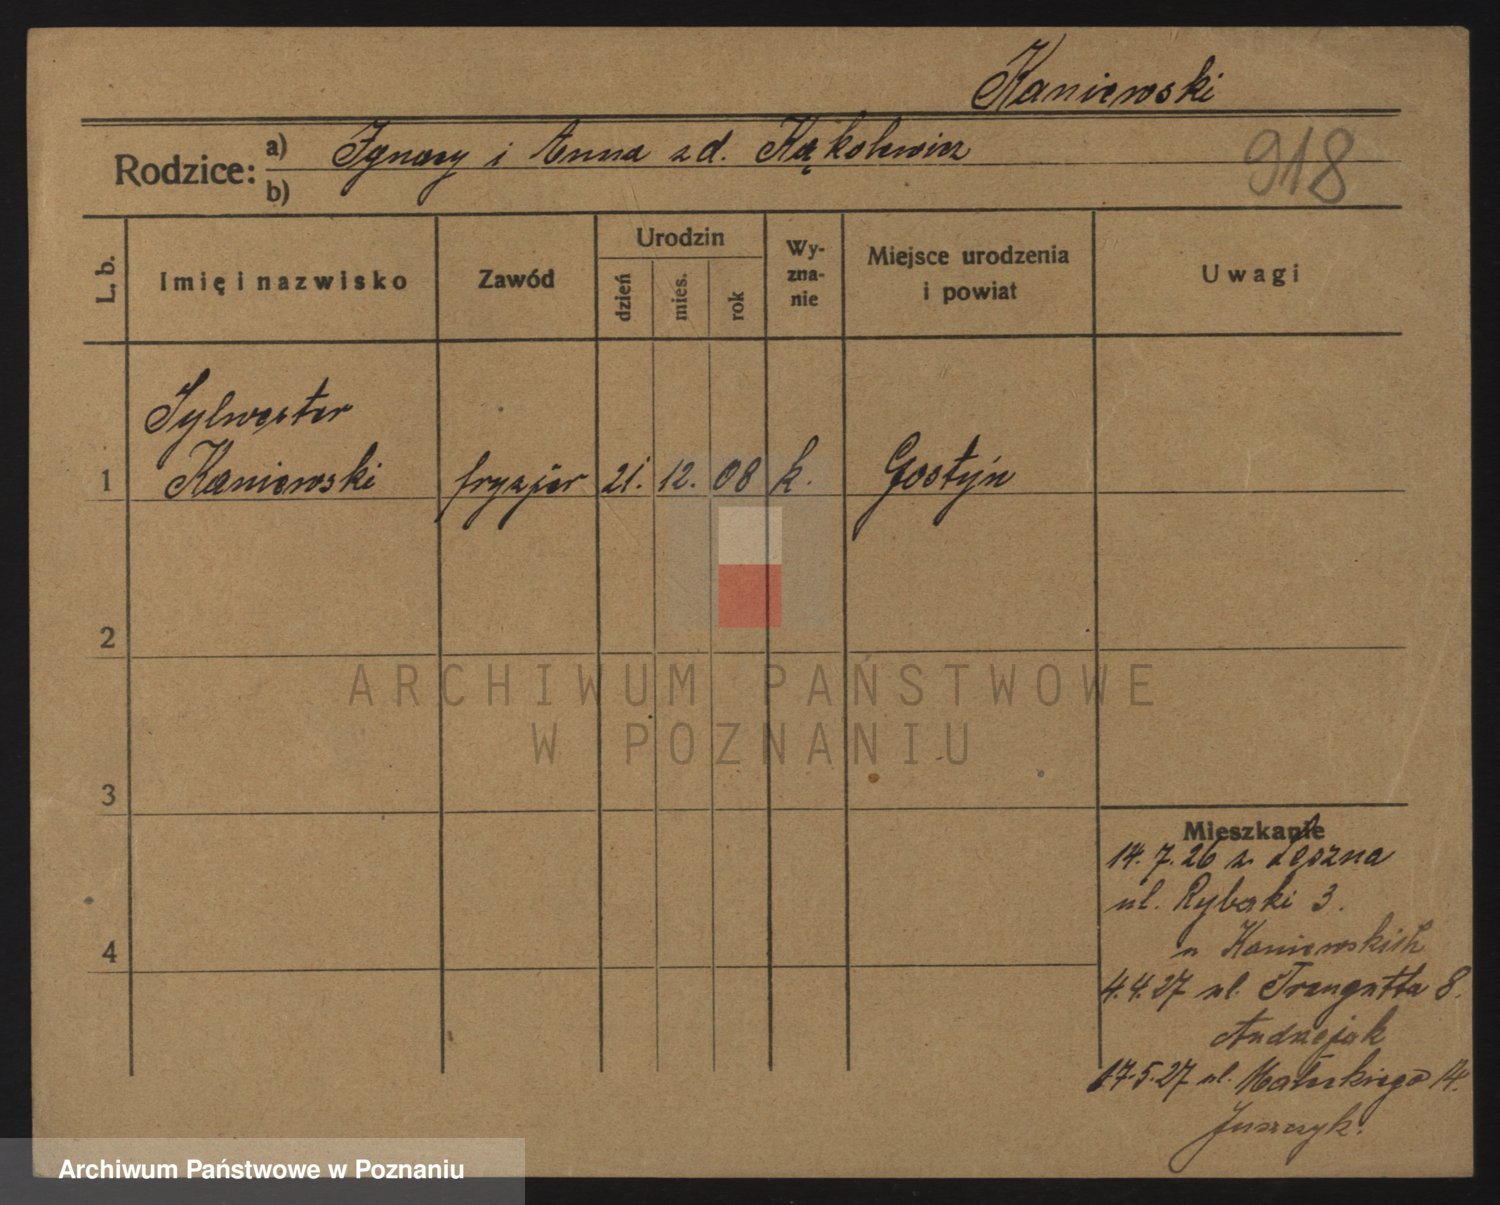 Kaniewski
Rodzice: a) Ignacy i Anna zd. Kąkolewicz
b)
918
L. b.
Imię i nazwisko
Zawód
Urodzin
dzień
mies.
rok
Wy-
zna-
nie
Miejsce urodzenia
i powiat
Uwagi
Sylwester
1 Kaniewski fryzjer 21. 12. 08 k. Gostyń
2
3
4
ARCHIWUM PAŃSTWOWE
W POZNANIU
Mieszkanie
14.7.26 z Leszna
ul. Rybaki 3.
u Kaniewskich
4.4.27 ul. Traugutta 8.
Andrzejak
17.5.27 ul. 14.
Juszczyk.
Archiwum Państwowe w Poznaniu